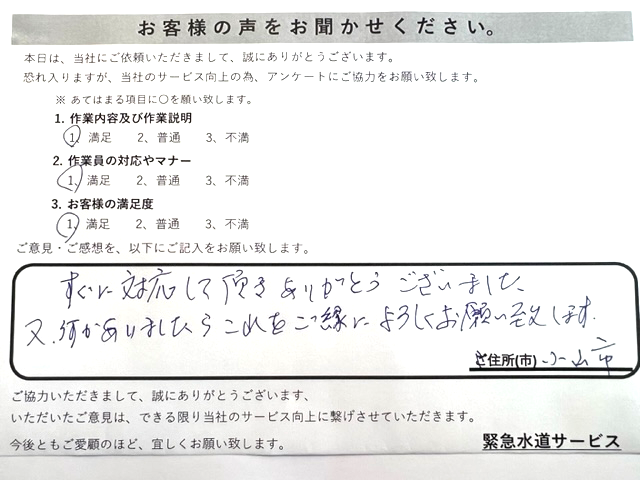 お客様の声をお聞かせください。
本日は、当社にご依頼いただきまして、誠にありがとうございます。
恐れ入りますが、当社のサービス向上の為、アンケートにご協力をお願い致します。
※ あてはまる項目に〇を願い致します。
1. 作業内容及び作業説明
1、満足 2、普通 3、不満
2. 作業員の対応やマナー
1、満足 2、普通 3、不満
3. お客様の満足度
1、満足 2、普通 3、不満
ご意見・ご感想を、以下にご記入をお願い致します。
すぐに対応して頂きありがとうございました、
又、何かありましたらこれをご縁によろしくお願い致します.
ご住所(市) 小山市
ご協力いただきまして、誠にありがとうございます、
いただいたご意見は、できる限り当社のサービス向上に繋げさせていただきます。
今後ともご愛顧のほど、宜しくお願い致します。
緊急水道サービス